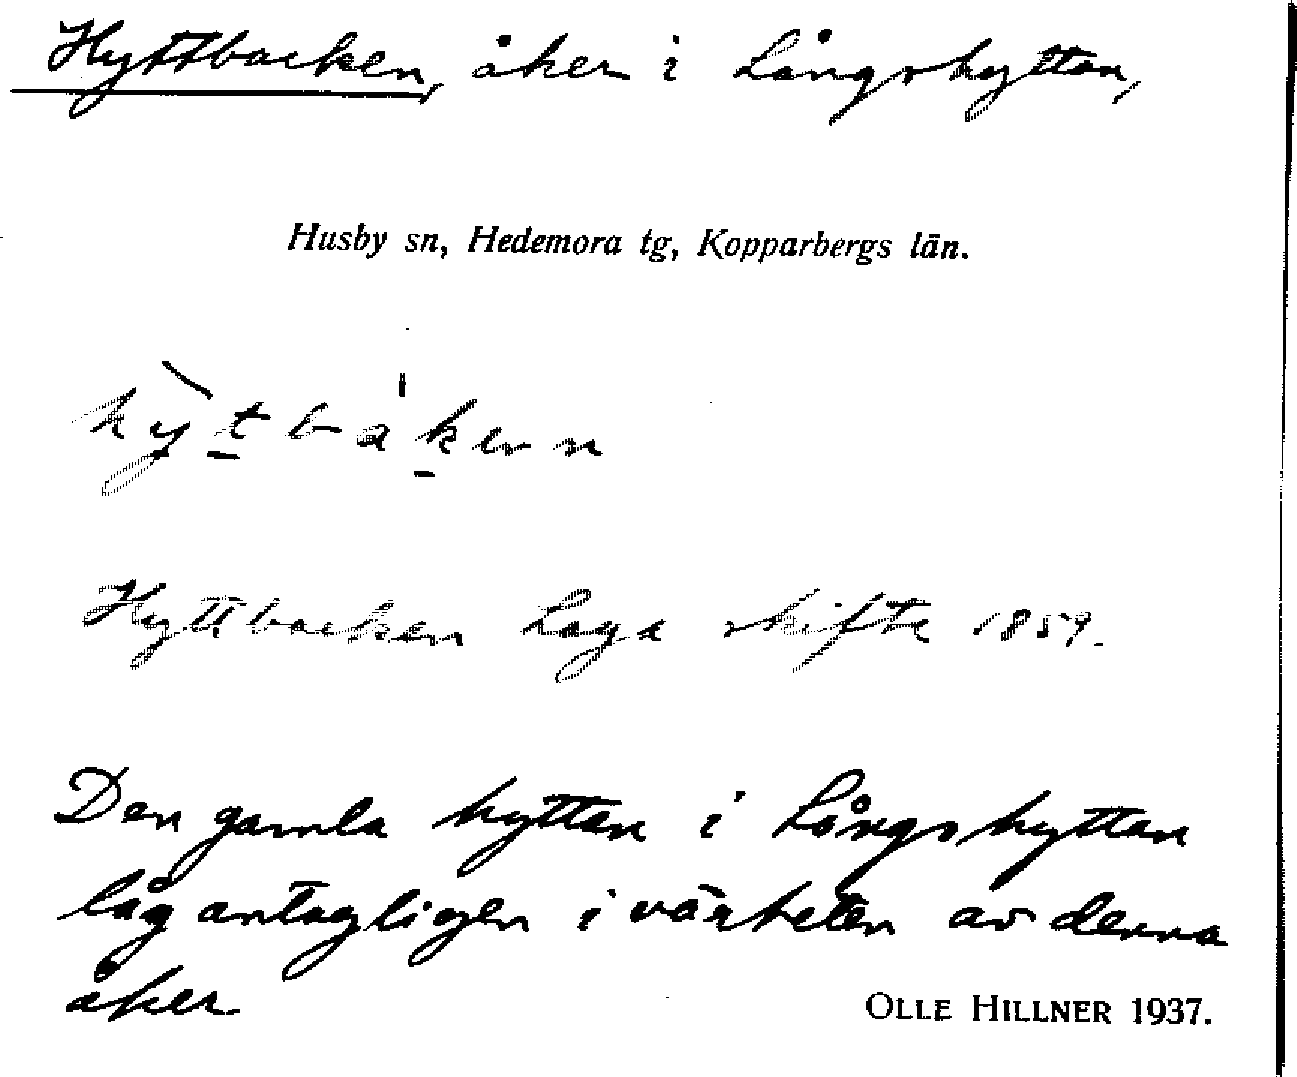 Hyttbacken, åker i Långshyttan,
Husby sn, Hedemora tg, Kopparbergs län.
hỳtbàken
Hyttbacken Laga skifte 1859.
Den gamla hyttan i Långshyttan
låg antagligen i närheten av denna
åker.
OLLE HILLNER 1937.